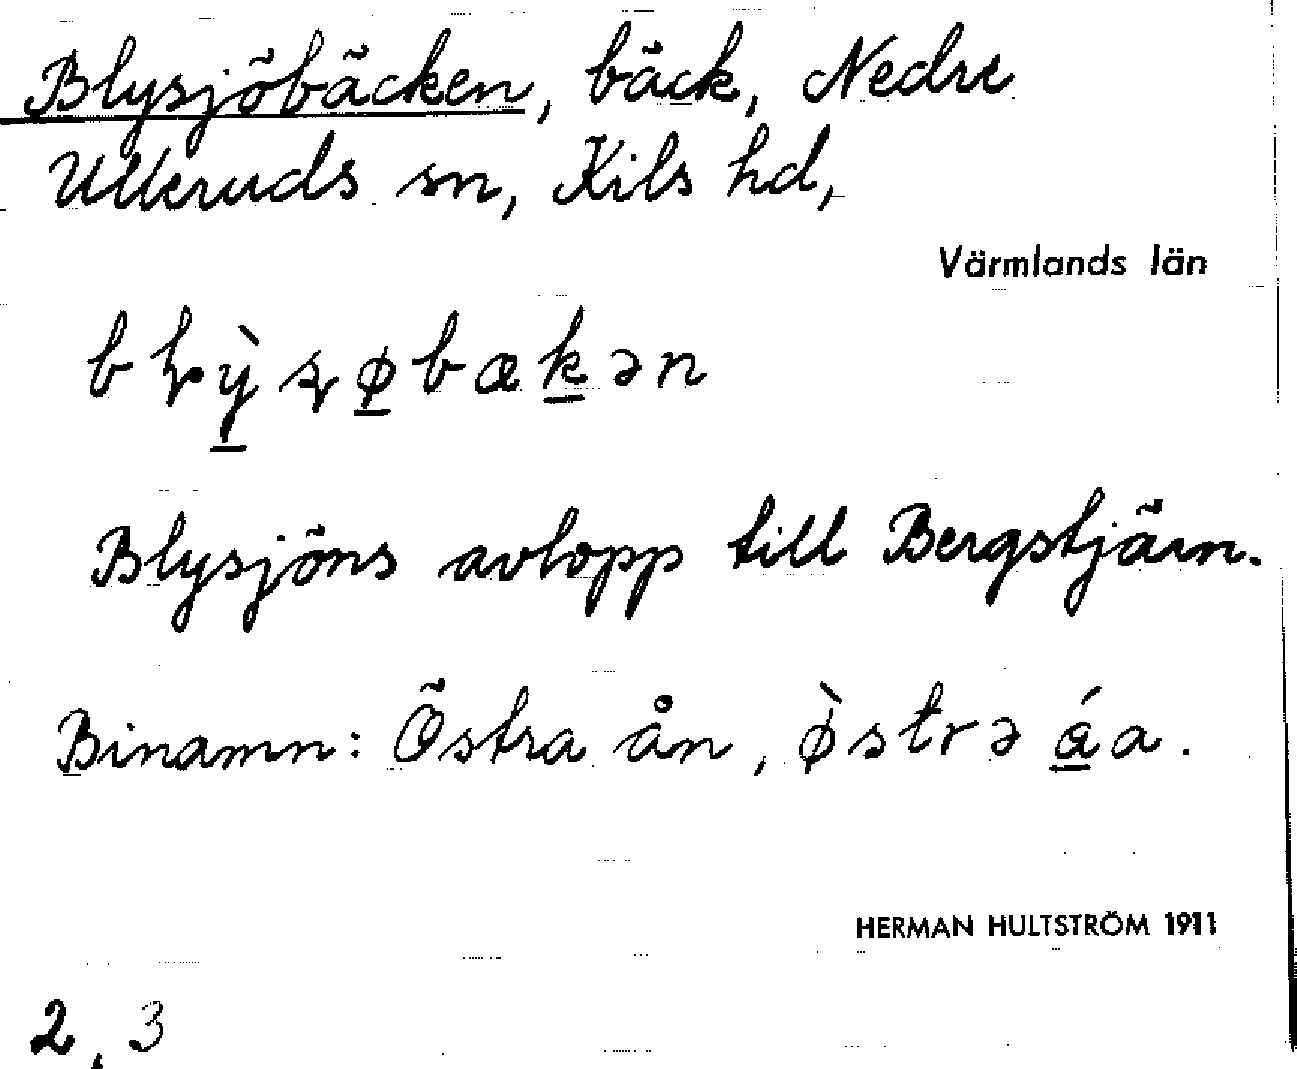 Blysjöbäcken, bäck, Nedre
Ulleruds sn, Kils hd,
Värmlands län
Blysjöns avlopp till Bergstjärn.
Binamn: Östra ån, ø̀strə áa.
HERMAN HULTSTRÖM 1911
2, 3